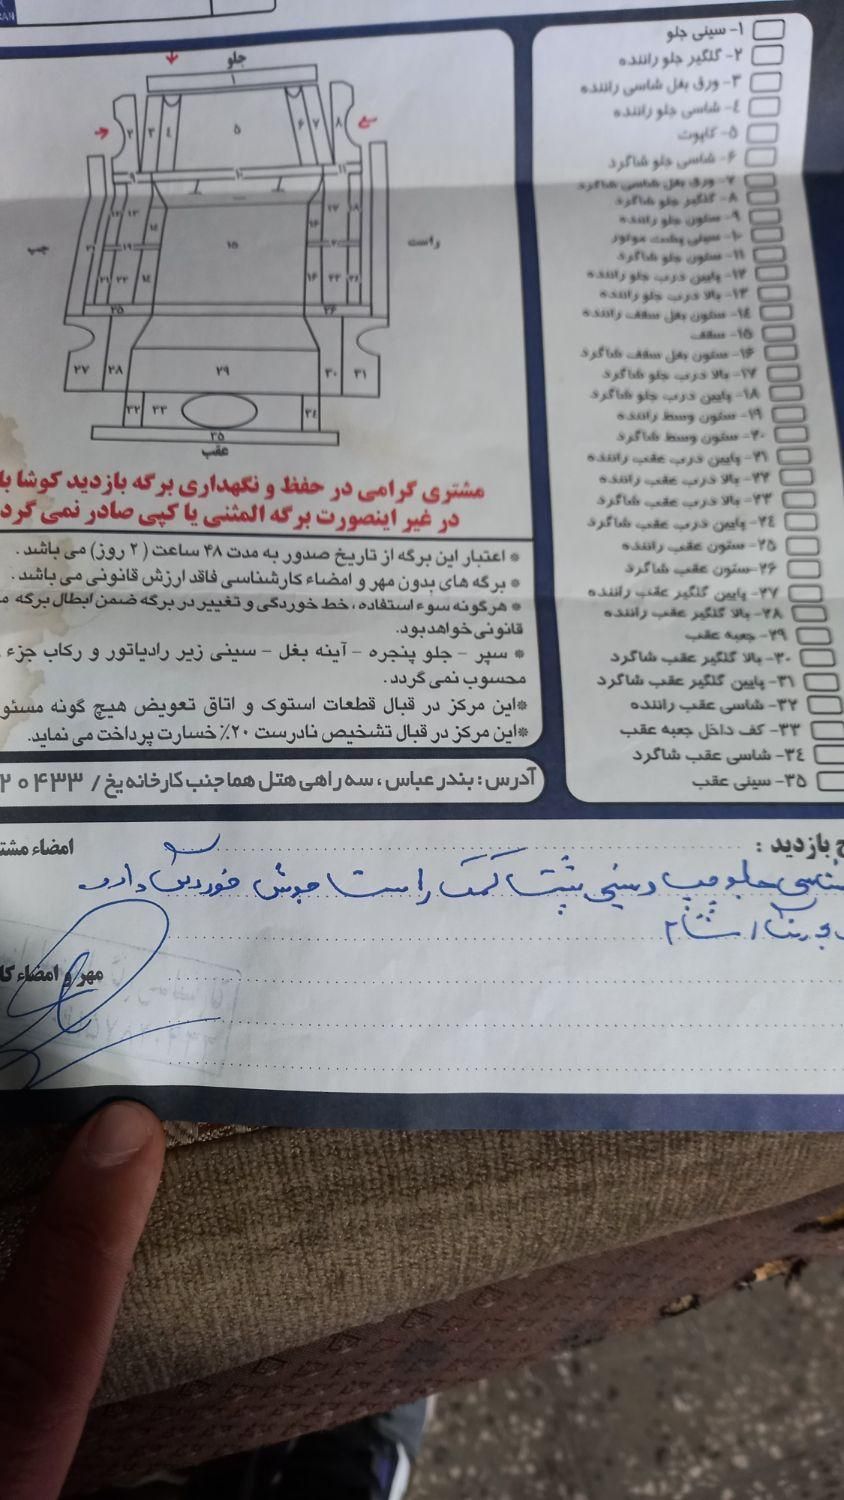 RAN
۱- سینی جلو
۲- گلگیر جلو راننده
۳- ورق بغل شاسی راننده
۴- شاسی جلو راننده
۵- کاپوت
۶- شاسی جلو شاگرد
۷- ورق بغل شاسی شاگرد
۸- گلگیر جلو شاگرد
۹- ستون جلو راننده
۱۰- سینی پشت موتور
۱۱- ستون جلو شاگرد
۱۲- پایین درب جلو راننده
۱۳- بالا درب جلو راننده
۱۴- ستون بغل سقف راننده
۱۵- سقف
۱۶- ستون بغل سقف شاگرد
۱۷- بالا درب جلو شاگرد
۱۸- پایین درب جلو شاگرد
۱۹- ستون وسط راننده
۲۰- ستون وسط شاگرد
۲۱- پایین درب عقب راننده
۲۲- بالا درب عقب راننده
۲۳- بالا درب عقب شاگرد
۲۴- پایین درب عقب شاگرد
۲۵- ستون عقب راننده
۲۶- ستون عقب شاگرد
۲۷- پایین گلگیر عقب راننده
۲۸- بالا گلگیر عقب راننده
۲۹- جعبه عقب
۳۰- بالا گلگیر عقب شاگرد
۳۱- پایین گلگیر عقب شاگرد
۳۲- شاسی عقب راننده
۳۳- کف داخل جعبه عقب
۳۴- شاسی عقب شاگرد
۳۵- سینی عقب
جلو
۱
۲ ۳ ۴ ۵ ۶ ۷ ۸
۹ ۱۰ ۱۱
راست
چپ
۱۵
۲۵ ۲۶
۲۷ ۲۸ ۲۹ ۳۰ ۳۱
۳۲ ۳۳ ۳۴
۳۵
عقب
مشتری گرامی در حفظ و نگهداری برگه بازدید کوشا با
در غیر اینصورت برگه المثنی یا کپی صادر نمی گرد
* اعتبار این برگه از تاریخ صدور به مدت ۴۸ ساعت (۲ روز) می باشد .
* برگه های بدون مهر و امضاء کارشناسی فاقد ارزش قانونی می باشد .
* هرگونه سوء استفاده، خط خوردگی و تغییر در برگه ضمن ابطال برگه
قانونی خواهد بود.
* سپر - جلو پنجره - آینه بغل - سینی زیر رادیاتور و رکاب جزء
محسوب نمی گردد .
*این مرکز در قبال قطعات استوک و اتاق تعویض هیچ گونه مسئو
*این مرکز در قبال تشخیص نادرست ۲۰٪ خسارت پرداخت می نماید.
آدرس : بندر عباس ، سه راهی هتل هما جنب کارخانه یخ / ۲۰۴۳۳
بازدید :
امضاء مشت
جلو چپ و سینی پشت کمک راست جوش خوردگی دارد
مهر و امضاء کا